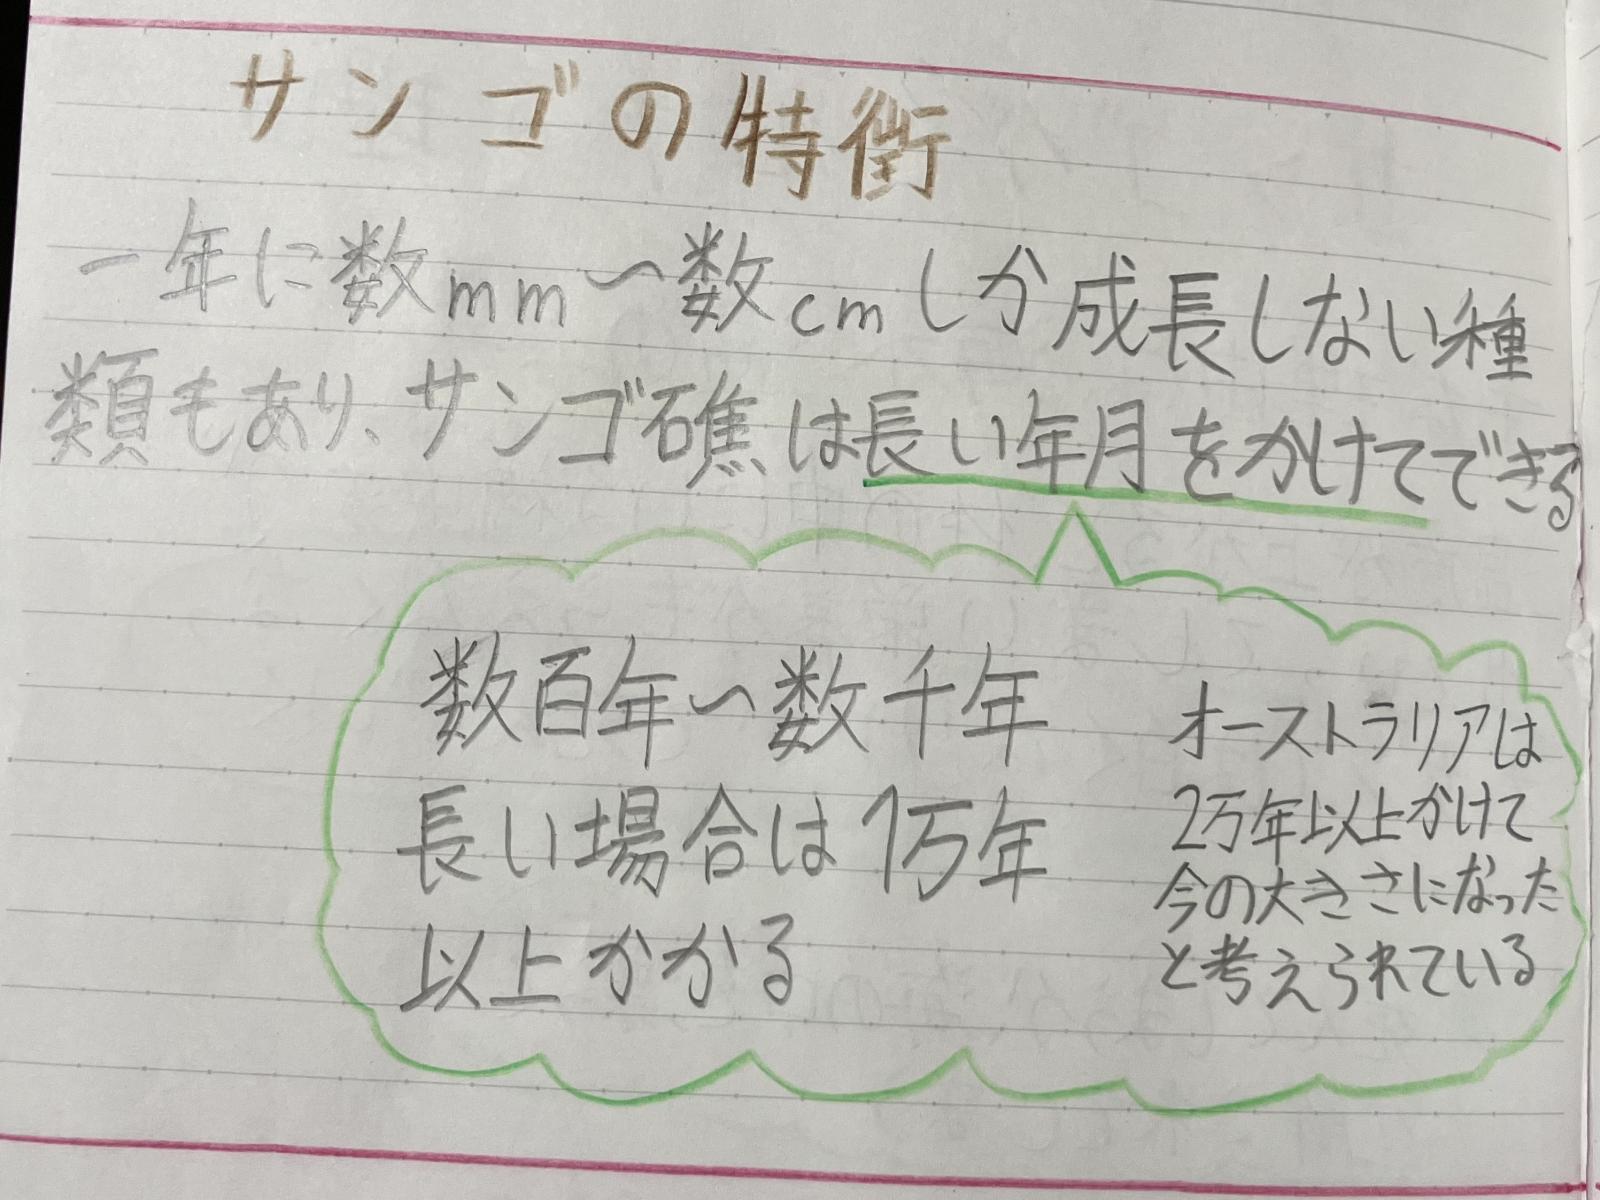 サンゴの特徴
一年に数mm〜数cmしか成長しない種
類もあり、サンゴ礁は長い年月をかけてできる
数百年〜数千年
長い場合は1万年
以上かかる
オーストラリアは
2万年以上かけて
今の大きさになった
と考えられている